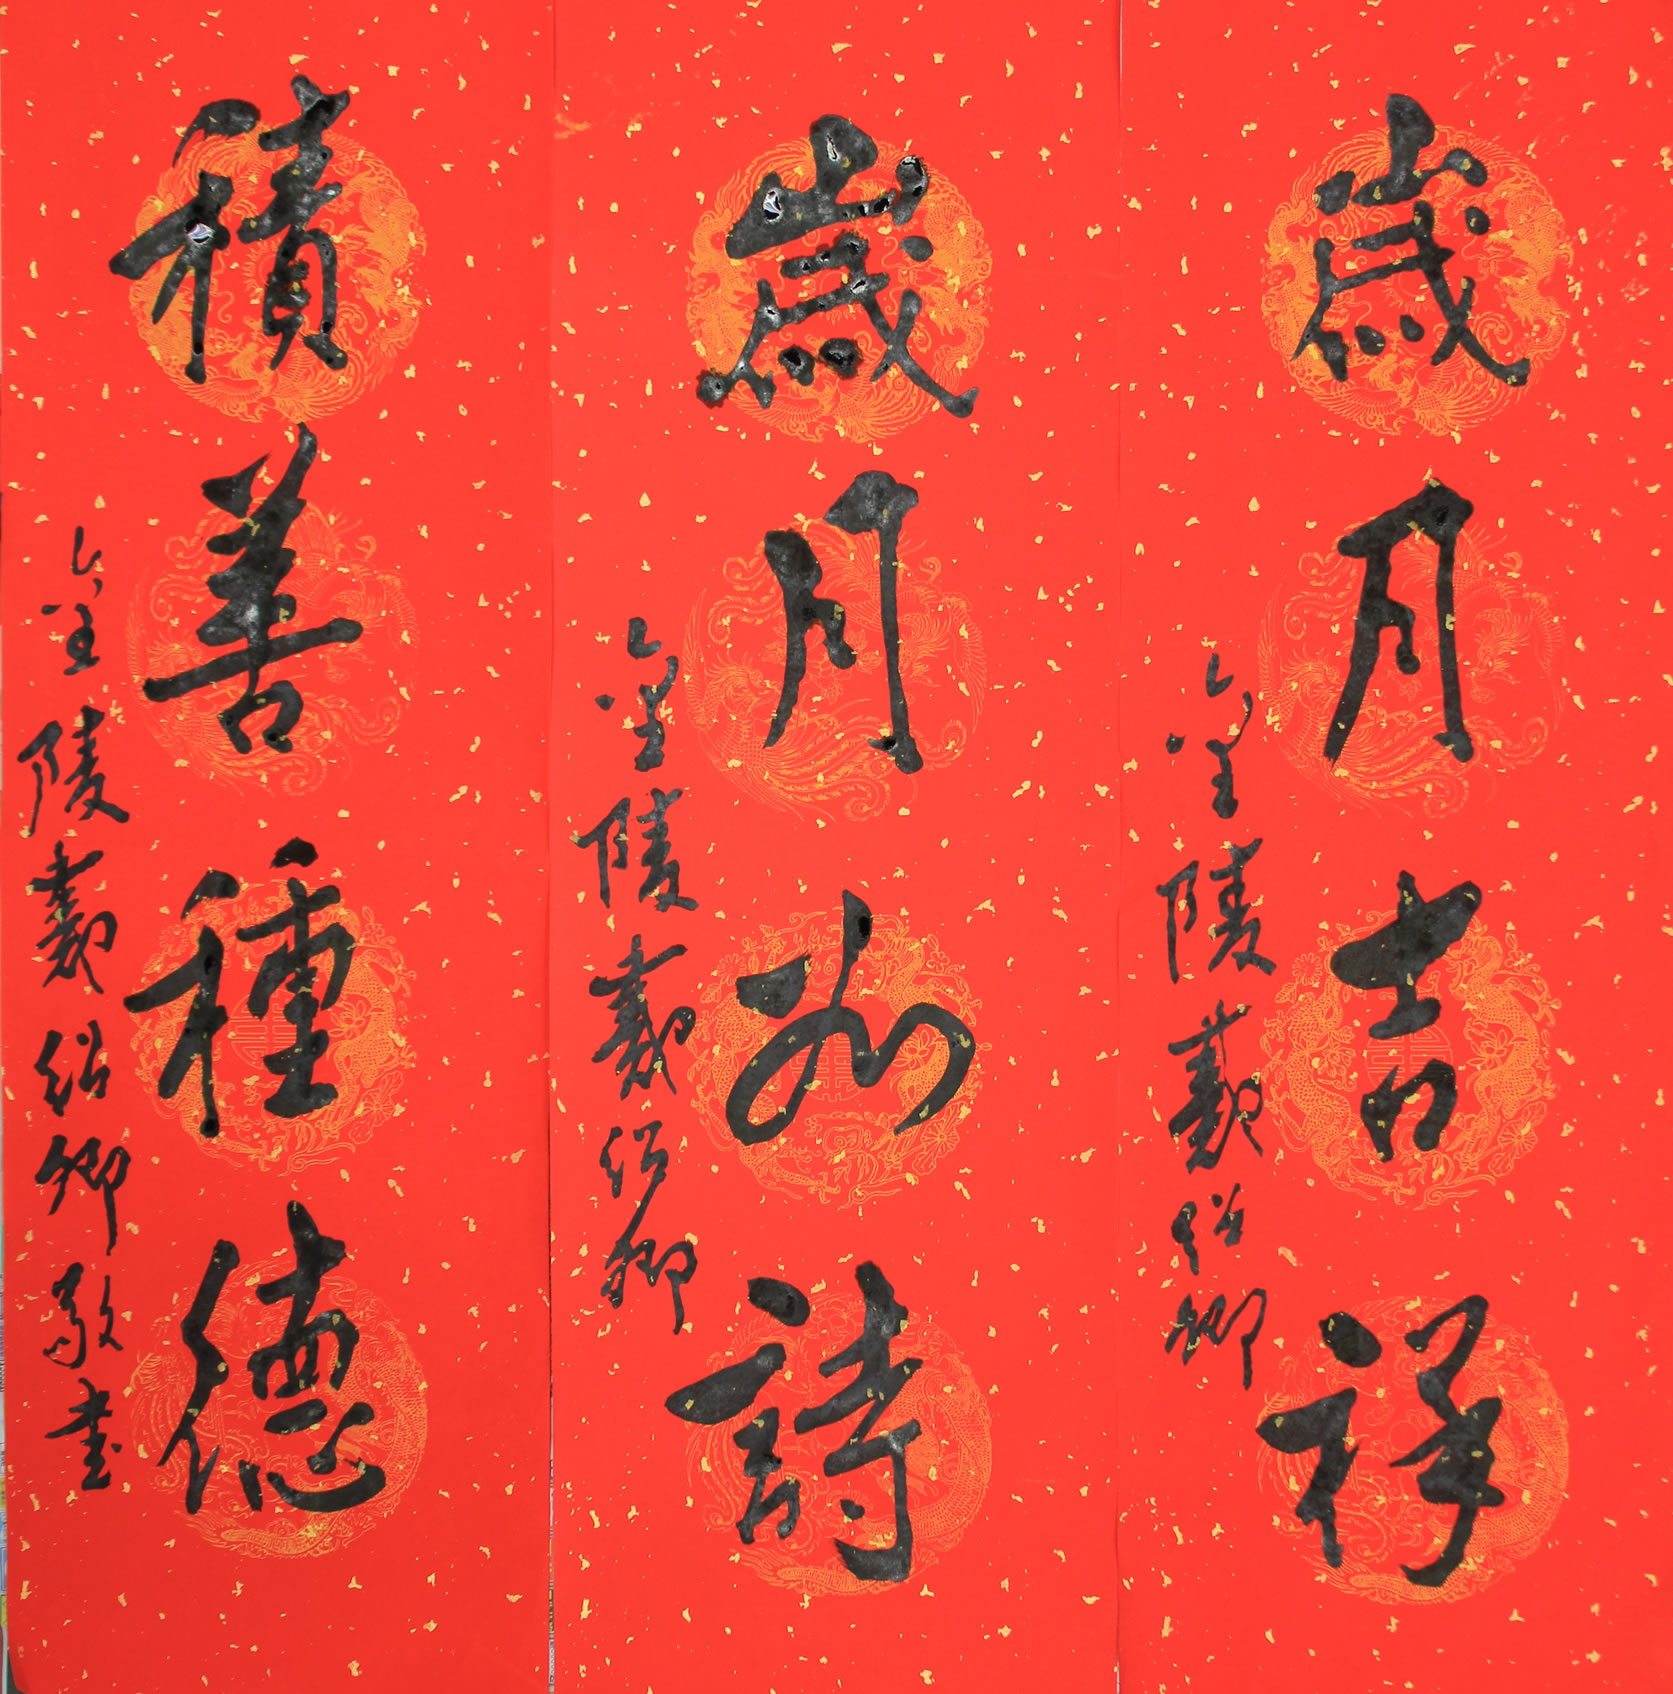 歲月吉祥
金陵戴紹卿
歲月如詩
金陵戴紹卿
積善種德
金陵戴紹卿敬书